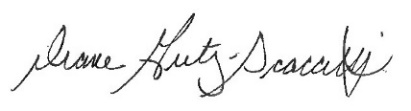 Diane Gutz-Scaccetti